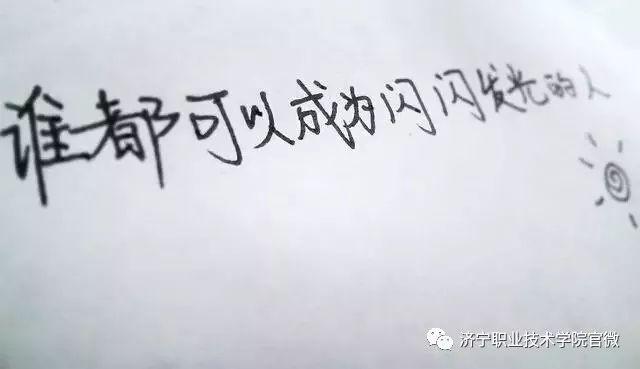 谁都可以成为闪闪发光的人
济宁职业技术学院官微